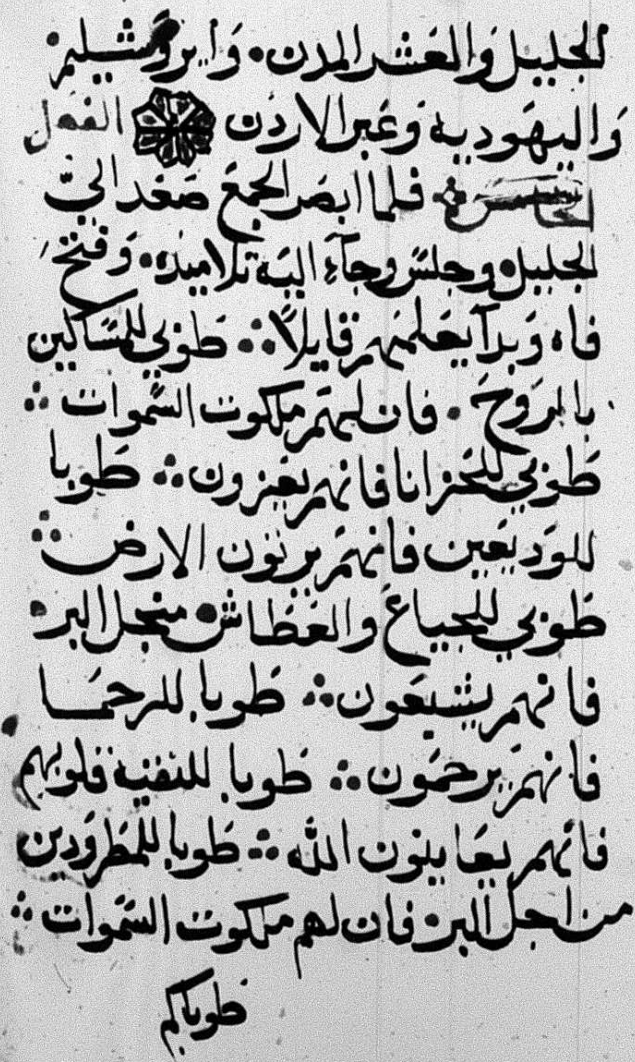 الجليل والعشر المدن . وايروشيليم .
واليهودية وعبر الاردن الفصل
الخامس فلما ابصر الجمع صعد الي
الجليل . وجلس وجآء اليه تلاميذه . وفتح
فاه وبدآ يعلمهم قايلاً ... طوبي للمساكين
بالروح . فان لهم ملكوت السموات ...
طوبي للحزانا فانهم يعزون ... طوبا
للوديعين فانهم يرثون الارض ...
طوبي للجياع والعطاش . من جل البر .
فانهم يشبعون ... طوبا للرحما
فانهم يرحمون ... طوبا للنقيه قلوبهم
فانهم يعاينون الله ... طوبا للمطرودين
من اجل البر . فان لهم ملكوت السموات ...
طوباكم